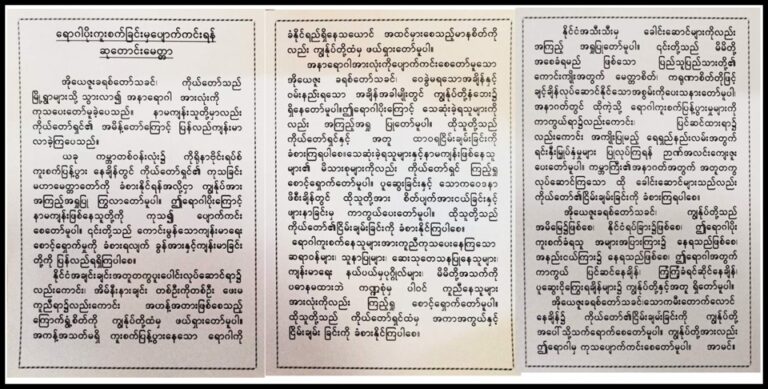 ရောဂါပိုးကူးစက်ခြင်းမှပျောက်ကင်းရန်
ဆုတောင်းမေတ္တာ
အိုယေဇူးခရစ်တော်သခင်၊ ကိုယ်တော်သည်
မြို့ရွာများသို့ သွားလာ၍ အနာရောဂါ အားလုံးကို
ကုသပေးတော်မူခဲ့ပေသည်။ နာမကျန်းသူတို့မှာလည်း
ကိုယ်တော်ရှင်၏ အမိန့်တော်ကြောင့် ပြန်လည်ကျန်းမာ
လာခဲ့ကြပေသည်။
ယခု ကမ္ဘာတစ်ဝန်းလုံး၌ ကိုရိုနာဗိုင်းရပ်စ်
ကူးစက်ပြန့်ပွား နေချိန်တွင် ကိုယ်တော်ရှင်၏ ကုသခြင်း
မဟာမေတ္တာတော်ကို ခံစားနိုင်ရန်အလို့ငှာ ကျွန်ုပ်အား
အကြည့်အရှုပြု ကြွလာတော်မူပါ။ ဤရောဂါပိုးကြောင့်
နာမကျန်းဖြစ်နေသူတို့ကို ကုသ၍ ပျောက်ကင်း
စေတော်မူပါ။ ၎င်းတို့သည် ကောင်းမွန်သောကျန်းမာရေး
စောင့်ရှောက်မှုကို ခံစားရလျက် ခွန်အားနှင့်ကျန်းမာခြင်း
တို့ကို ပြန်လည်ရရှိကြပါစေ။
နိုင်ငံအချင်းချင်းအတူတကွပူးပေါင်းလုပ်ဆောင်ရာ၌
လည်းကောင်း၊ အိမ်နီးနားချင်း တစ်ဦးကိုတစ်ဦး ဖေးမ
ကူညီရာ၌လည်းကောင်း အဟန့်အတားဖြစ်စေသည့်
ကြောက်ရွံ့စိတ်ကို ကျွန်ုပ်တို့ထံမှ ဖယ်ရှားတော်မူပါ။
အကန့်အသတ်မရှိ ကူးစက်ပြန့်ပွားနေသော ရောဂါကို
ခံနိုင်ရည်ရှိနေသယောင် အထင်မှားစေသည့်မာနစိတ်ကို
လည်း ကျွန်ုပ်တို့ထံမှ ဖယ်ရှားတော်မူပါ။
အနာရောဂါအားလုံးကိုပျောက်ကင်းစေတော်မူသော
အိုယေဇူး ခရစ်တော်သခင်၊ ဝေခွဲမရသောအချိန်နှင့်
ဝမ်းနည်းရသော အချိန်အခါမျိုးတွင် ကျွန်ုပ်တို့နံဘေး၌
ရှိနေတော်မူပါ။ဤရောဂါပိုးကြောင့် သေဆုံးခဲ့ရသူများကို
လည်း အကြည့်အရှု ပြုတော်မူပါ။ ထိုသူတို့သည်
ကိုယ်တော်ရှင်နှင့် အတူ ထာဝရငြိမ်းချမ်းခြင်းကို
ခံစားကြရပါစေ။သေဆုံးခဲ့ရသူများနှင့်နာမကျန်းဖြစ်နေသူ
များ၏ မိသားစုများကိုလည်း ကိုယ်တော်ရှင် ကြည့်ရှု
စောင့်ရှောက်တော်မူပါ။ ပူဆွေးခြင်းနှင့် သောကဝေဒနာ
ဖိစီးချိန်တွင် ထိုသူတို့အား စိတ်ပျက်အားငယ်ခြင်းနှင့်
ဖျားနာခြင်းမှ ကာကွယ်ပေးတော်မူပါ။ ထိုသူတို့သည်
ကိုယ်တော်၏ငြိမ်းချမ်းခြင်းကို ခံစားနိုင်ကြပါစေ။
ရောဂါကူးစက်နေသူများအားကူညီကုသပေးနေကြသော
ဆရာဝန်များ၊ သူနာပြုများ၊ ဆေးသုတေသနပြုနေသူများ၊
ကျန်းမာရေး နယ်ပယ်မှပုဂ္ဂိုလ်များ၊ မိမိတို့အသက်ကို
ပဓာနမထားဘဲ ကဏ္ဍစုံမှ ပါဝင် ကူညီနေသူများ
အားလုံးကိုလည်း ကြည့်ရှု စောင့်ရှောက်တော်မူပါ။
ထိုသူတို့သည် ကိုယ်တော်ရှင်ထံမှ အကာအကွယ်နှင့်
ငြိမ်းချမ်း ခြင်းကို ခံစားနိုင်ကြပါစေ။
နိုင်ငံအသီးသီးမှ ခေါင်းဆောင်များကိုလည်း
အကြည့် အရှုပြုတော်မူပါ။ ၎င်းတို့သည် မိမိတို့
အစေခံရမည် ဖြစ်သော ပြည်သူပြည်သားတို့၏
ကောင်းကျိုးအတွက် မေတ္တာစိတ်၊ ကရုဏာစိတ်တို့ဖြင့်
ချင့်ချိန်လုပ်ဆောင်နိုင်သောအစွမ်းကိုပေးသနားတော်မူပါ။
အနာဂတ်တွင် ထိုကဲ့သို့ ရောဂါကူးစက်ပြန့်ပွားမှုများကို
ကာကွယ်ရာ၌လည်းကောင်း၊ ပြင်ဆင်ထားရာ၌
လည်းကောင်း အကျိုးပြုမည့် ရေရှည်နည်းလမ်းအတွက်
ရင်းနှီးမြှုပ်နှံမှုများ ပြုလုပ်ကြရန် ဉာဏ်အလင်းကျေးဇူး
ပေးတော်မူပါ။ ကမ္ဘာကြီး၏အနာဂတ်အတွက် အတူတကွ
လုပ်ဆောင်ကြသော ထို ခေါင်းဆောင်များသည်လည်း
ကိုယ်တော်၏ငြိမ်းချမ်းခြင်းကို ခံစားကြရပါစေ။
အိုယေဇူးခရစ်တော်သခင်၊ ကျွန်ုပ်တို့သည်
အမိမြေ၌ဖြစ်စေ၊ နိုင်ငံရပ်ခြား၌ဖြစ်စေ၊ ဤရောဂါပိုး
ကူးစက်ခံရသူ အများအပြားကြား၌ နေရသည်ဖြစ်စေ၊
အနည်းငယ်ကြား၌ နေရသည်ဖြစ်စေ၊ ဤရောဂါအတွက်
ကာကွယ် ပြင်ဆင်နေချိန်၊ ကြံ့ကြံ့ခံရင်ဆိုင်နေချိန်၊
ပူဆွေးငိုကြွေးရချိန်များ ၌ ကျွန်ုပ်တို့နှင့်အတူ ရှိတော်မူပါ။
အိုယေဇူးခရစ်တော်သခင်၊သောကမီးတောက်လောင်
နေချိန်၌ ကိုယ်တော်၏ငြိမ်းချမ်းခြင်းကို ကျွန်ုပ်တို့
အပေါ် သို့သက်ရောက်စေတော်မူပါ။ ကျွန်ုပ်တို့အားလုံးကို
ဤရောဂါမှ ကုသပျောက်ကင်းစေတော်မူပါ။ အာမင်။